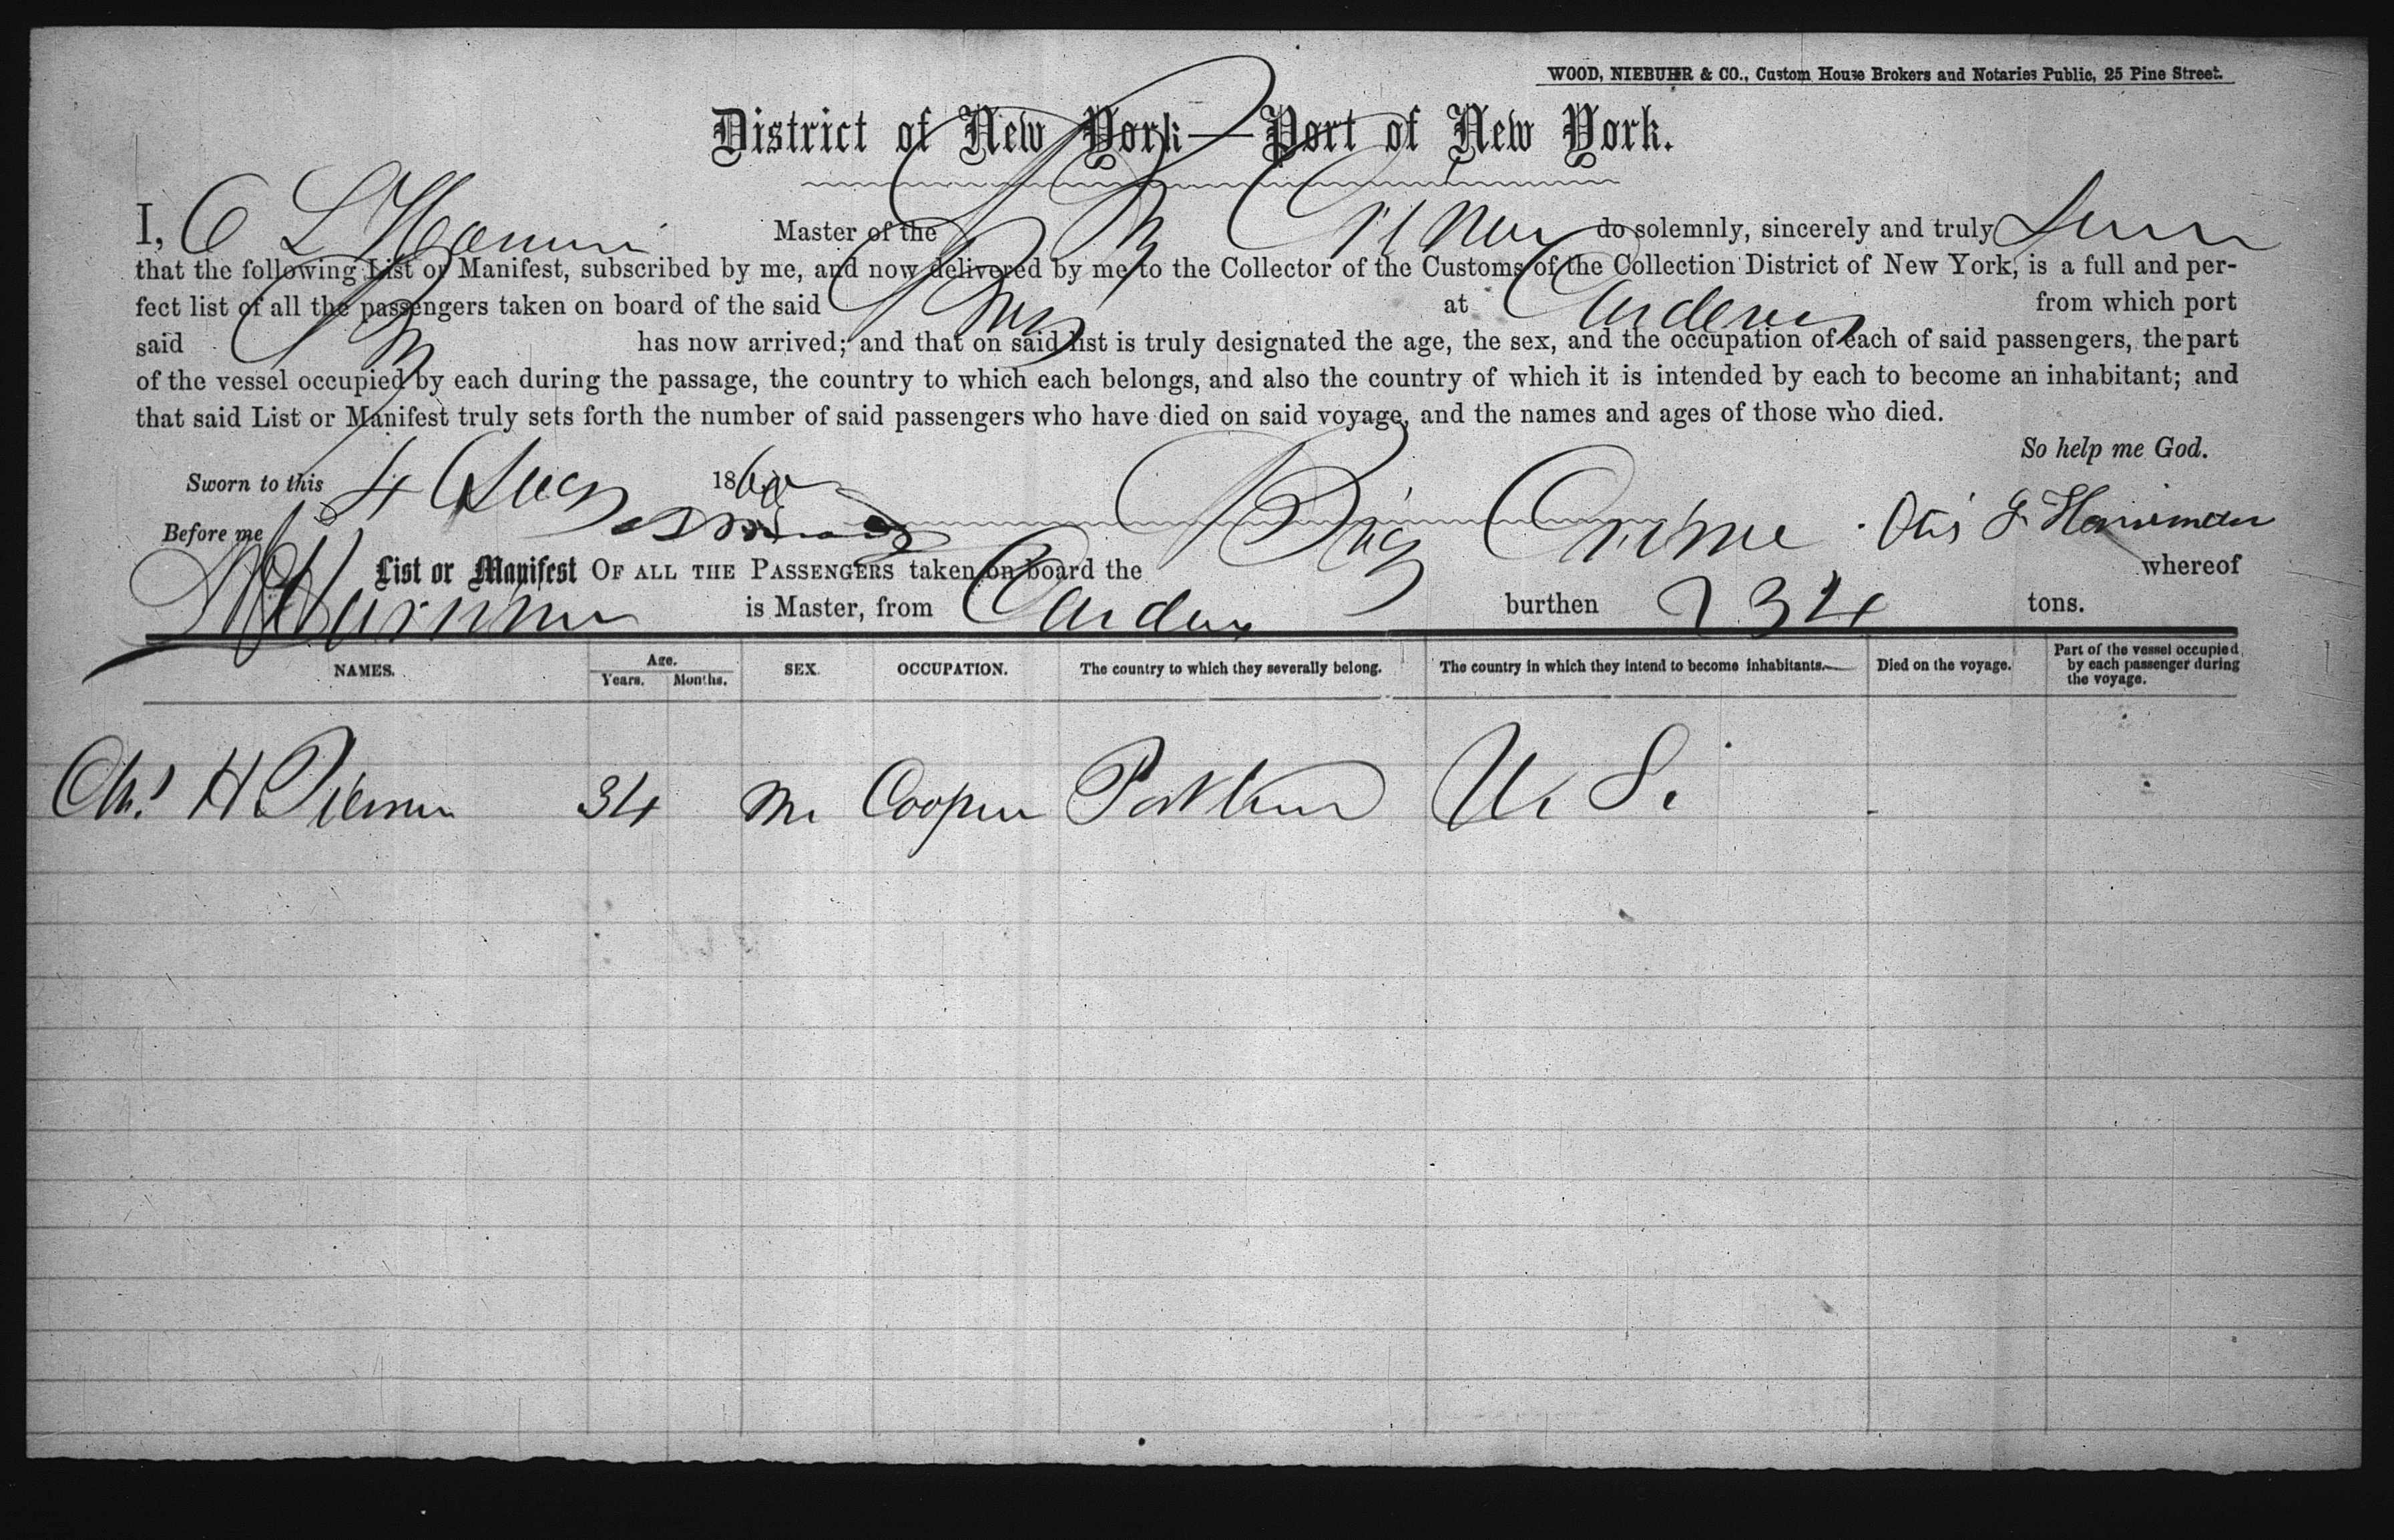 WOOD, NIEBUHR & CO., Custom House Brokers and Notaries Public, 25 Pine Street.
District of New York—Port of New York.
I, Master of the do solemnly, sincerely and truly
that the following List or Manifest, subscribed by me, and now delivered by me to the Collector of the Customs of the Collection District of New York, is a full and per-
fect list of all the passengers taken on board of the said Brig at Cardenas from which port
said has now arrived; and that on said list is truly designated the age, the sex, and the occupation of each of said passengers, the part
of the vessel occupied by each during the passage, the country to which each belongs, and also the country of which it is intended by each to become an inhabitant; and
that said List or Manifest truly sets forth the number of said passengers who have died on said voyage, and the names and ages of those who died.
So help me God.
Sworn to this 4 Aug 186
Before me
Brig Otis
List or Manifest OF ALL THE PASSENGERS taken on board the whereof
Harriman is Master, from Cardenas burthen 234 tons.
NAMES. Age. Years. Months. SEX. OCCUPATION. The country to which they severally belong. The country in which they intend to become inhabitants. Died on the voyage. Part of the vessel occupied by each passenger during the voyage.
Chs H 34 M Cooper Portland U. S.